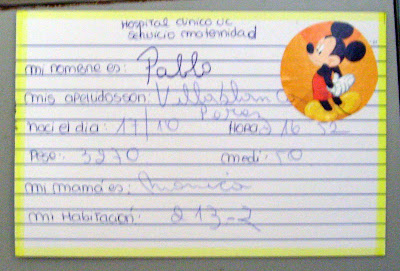 Hospital clinico UC
servicio maternidad
mi nombre es: Pablo
mis apellidos son: Villablanca
Perez
naci el dia: 17/10 Hora 16 52
Peso: 3270 medi: 50
mi mamá es: Monica
mi Habitación: 213-2